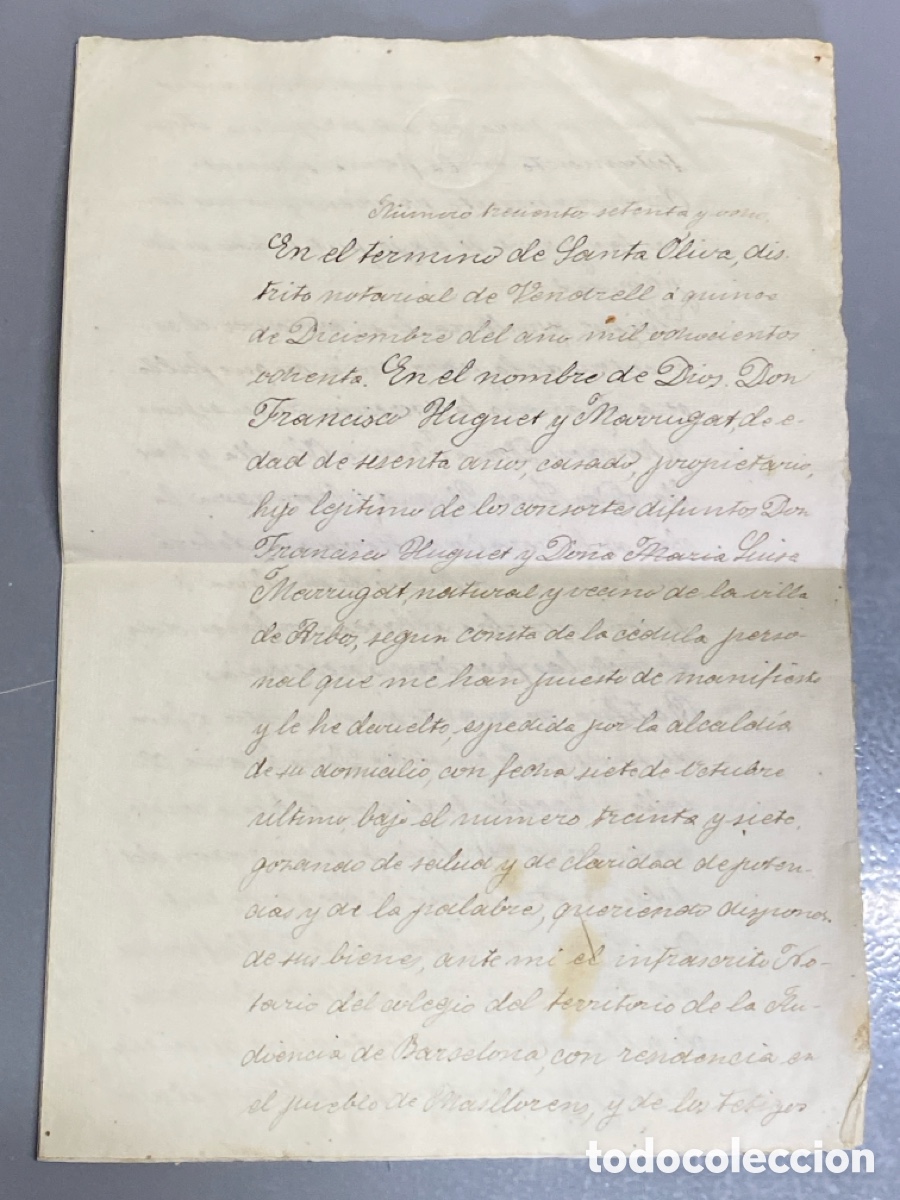 Número treciento setenta y ocho.
En el término de Santa Oliva, dis-
trito notarial de Vendrell á quince
de Diciembre del año mil ochocientos
ochenta. En el nombre de Dios. Don
Francisco Huguet y Marrugat, de e-
dad de sesenta años, casado, propietario,
hijo lejitimo de los consortes difuntos Don
Francisco Huguet y Doña Maria Luisa
Marrugat, natural y vecino de la villa
de Arbos, segun consta de la cédula perso-
nal que me han puesto de manifiesto
y le he devuelto, espedida por la alcaldía
de su domicilio, con fecha siete de octubre
ultimo, bajo el numero treinta y siete,
gozando de salud y de claridad de poten-
cias y de la palabra, queriendo disponer
de sus bienes, ante mi el infrascrito No-
tario del colegio del territorio de la Au-
diencia de Barselona, con residencia en
el pueblo de Masllorens, y de los testigos
todocoleccion